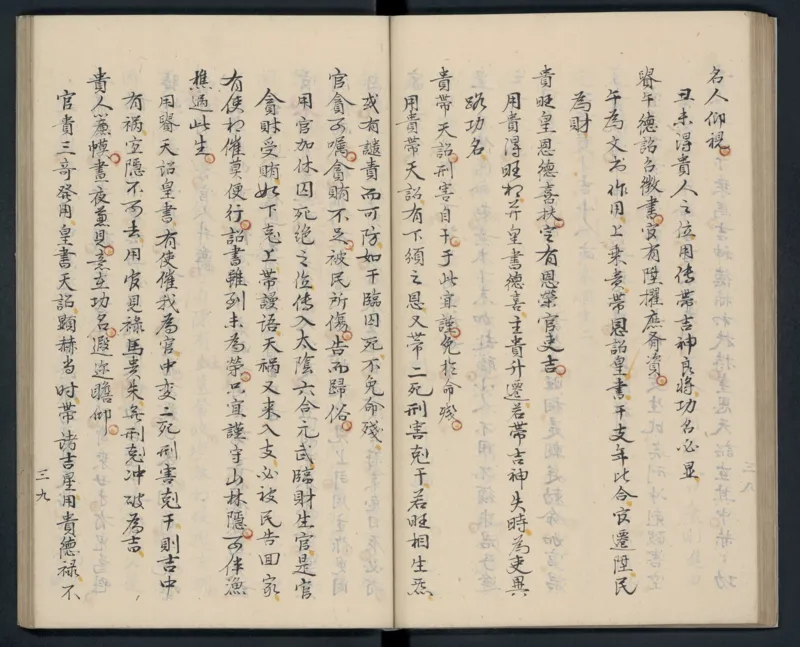 名人仰視
丑未得貴人之位用傳帶吉神良將功名必显
賢午德詔召徵書官有陞擢庶裔資
午為文书作用上乘貴帶恩詔皇書干支年比合官遷陞民
為財
貴旺皇恩德喜扶定有恩榮官吏吉
用貴得旺相并皇書德喜主貴升遷若帶吉神失時為吏異
路功名
貴帶天詔刑害自干于此宜謹免於命殘
用貴帶天詔有下頒之恩又帶二死刑害剋干若旺相生炁
日或有譴責而可防如干臨囚死不免命殘
官貪可囑貪賄不足被民所傷告而歸俗
用官加休囚死絕之位傳入太陰六合元武臨財生官是官
貪財受賄如下克上帶謾语天禍又来入支必被民告回家
有使相催莫便行詔書雖到未為榮只宜謹守山林隱可伴漁
樵過此生
用賢天詔皇書有使催我為官中变二死刑害剋干則吉中
有祸宜隱不可去用官見祿馬貴失无刑剋冲破為吉
貴人簾幙晝夜兼見意立功名遐迩瞻仰
官貴三奇發用皇書天詔顕赫当时帶諸吉屋用貴德禄不
三九